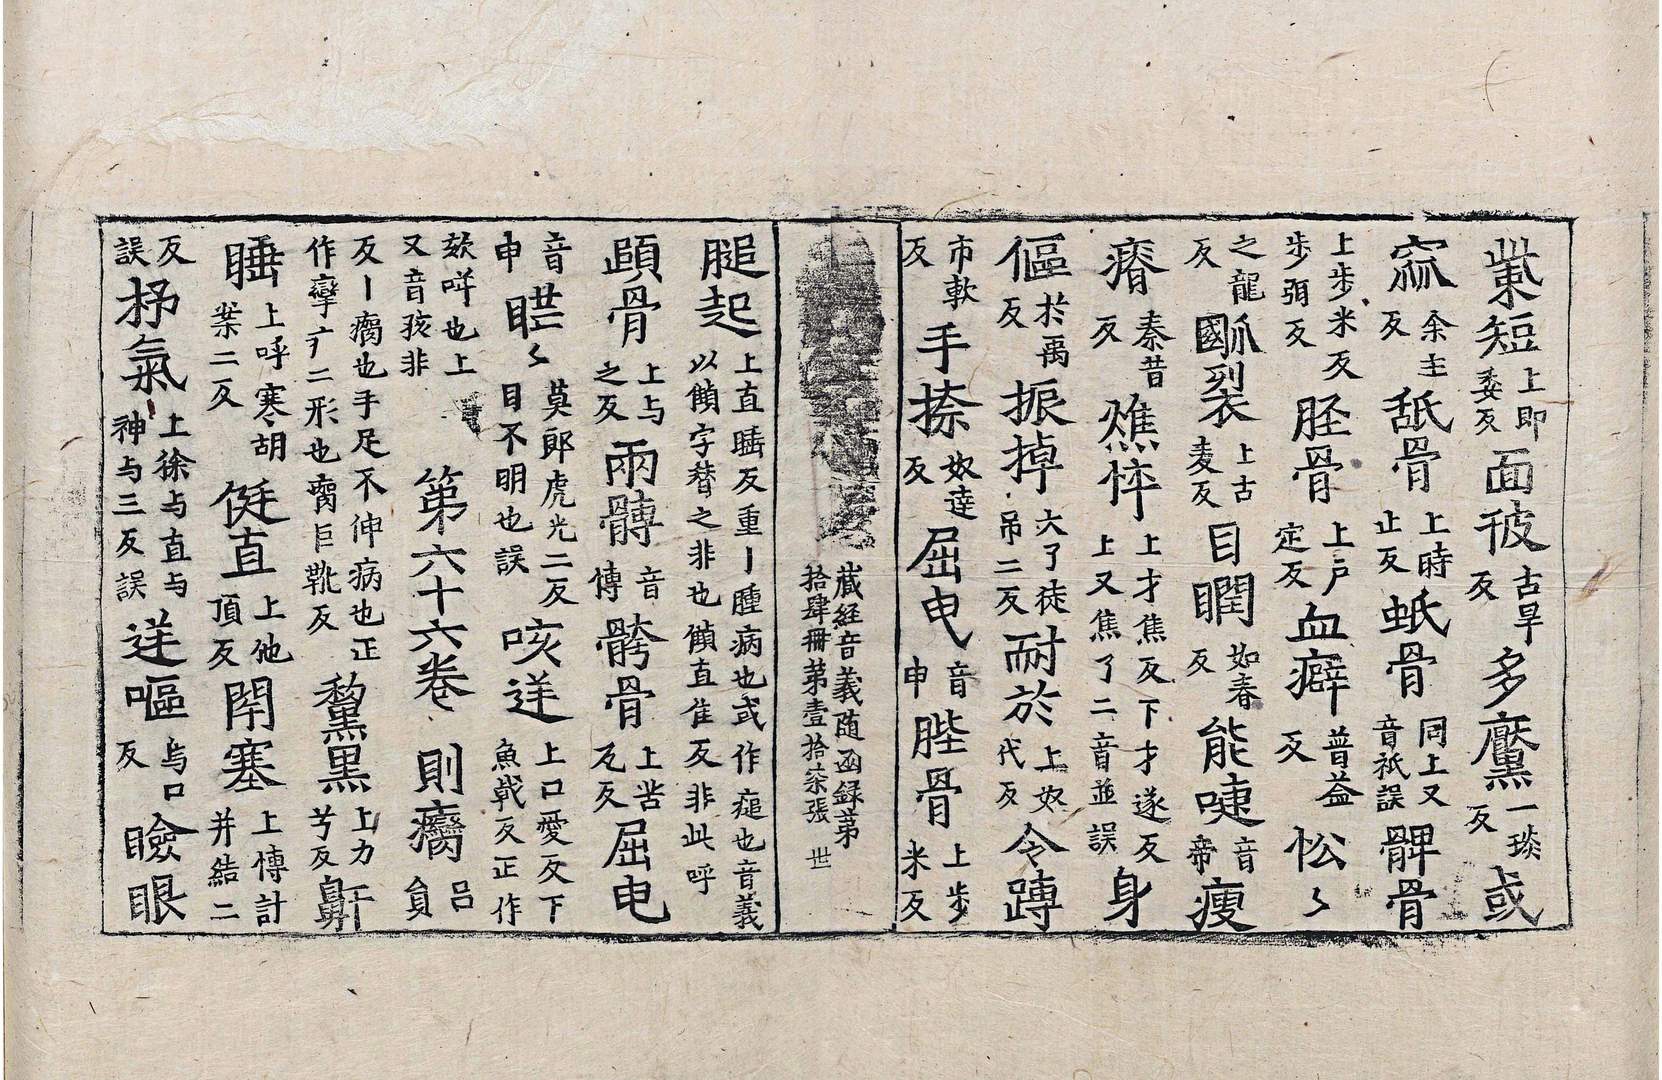 㭰短上即委反面皯古旱反多黶一琰反或
窳余主反䑛骨上時止反蚔骨同上又音祇誤髀骨
上步米反步弭反胵骨上戶定反血癖普益反忪〻
之龍反㓰裂上古麦反目瞤如春反能啑音帝瘦
瘠秦昔反燋悴上才焦反下才遂反上又焦了二音並誤身
傴於禹反振掉大了徒吊二反耐於上奴代反令蹲
市軟反手捺奴達反屈申音申䏶骨上步米反
藏經音義随函録第
拾肆冊第壹拾柒張 世
膇起上直睡反重丨腫病也或作㾽也音義以䫋字替之非也䫋直隹反非此呼
頤骨上与之反兩髆音博骻骨上苦瓦反屈申
音申䀮〻莫郎虎光二反目不明也誤咳逆上口愛反下魚戟反正作
欬咩也上又音孩非 第六十六卷 則癵呂貟
反丨癵也手足不伸病也正作孿疒二形也臠巨靴反黧黒上力兮反鼾
睡上呼寒胡案二反侹直上他頂反閇塞上愽計并結二
反誤抒氣上徐与直与神与三反誤逆嘔烏口反瞼眼